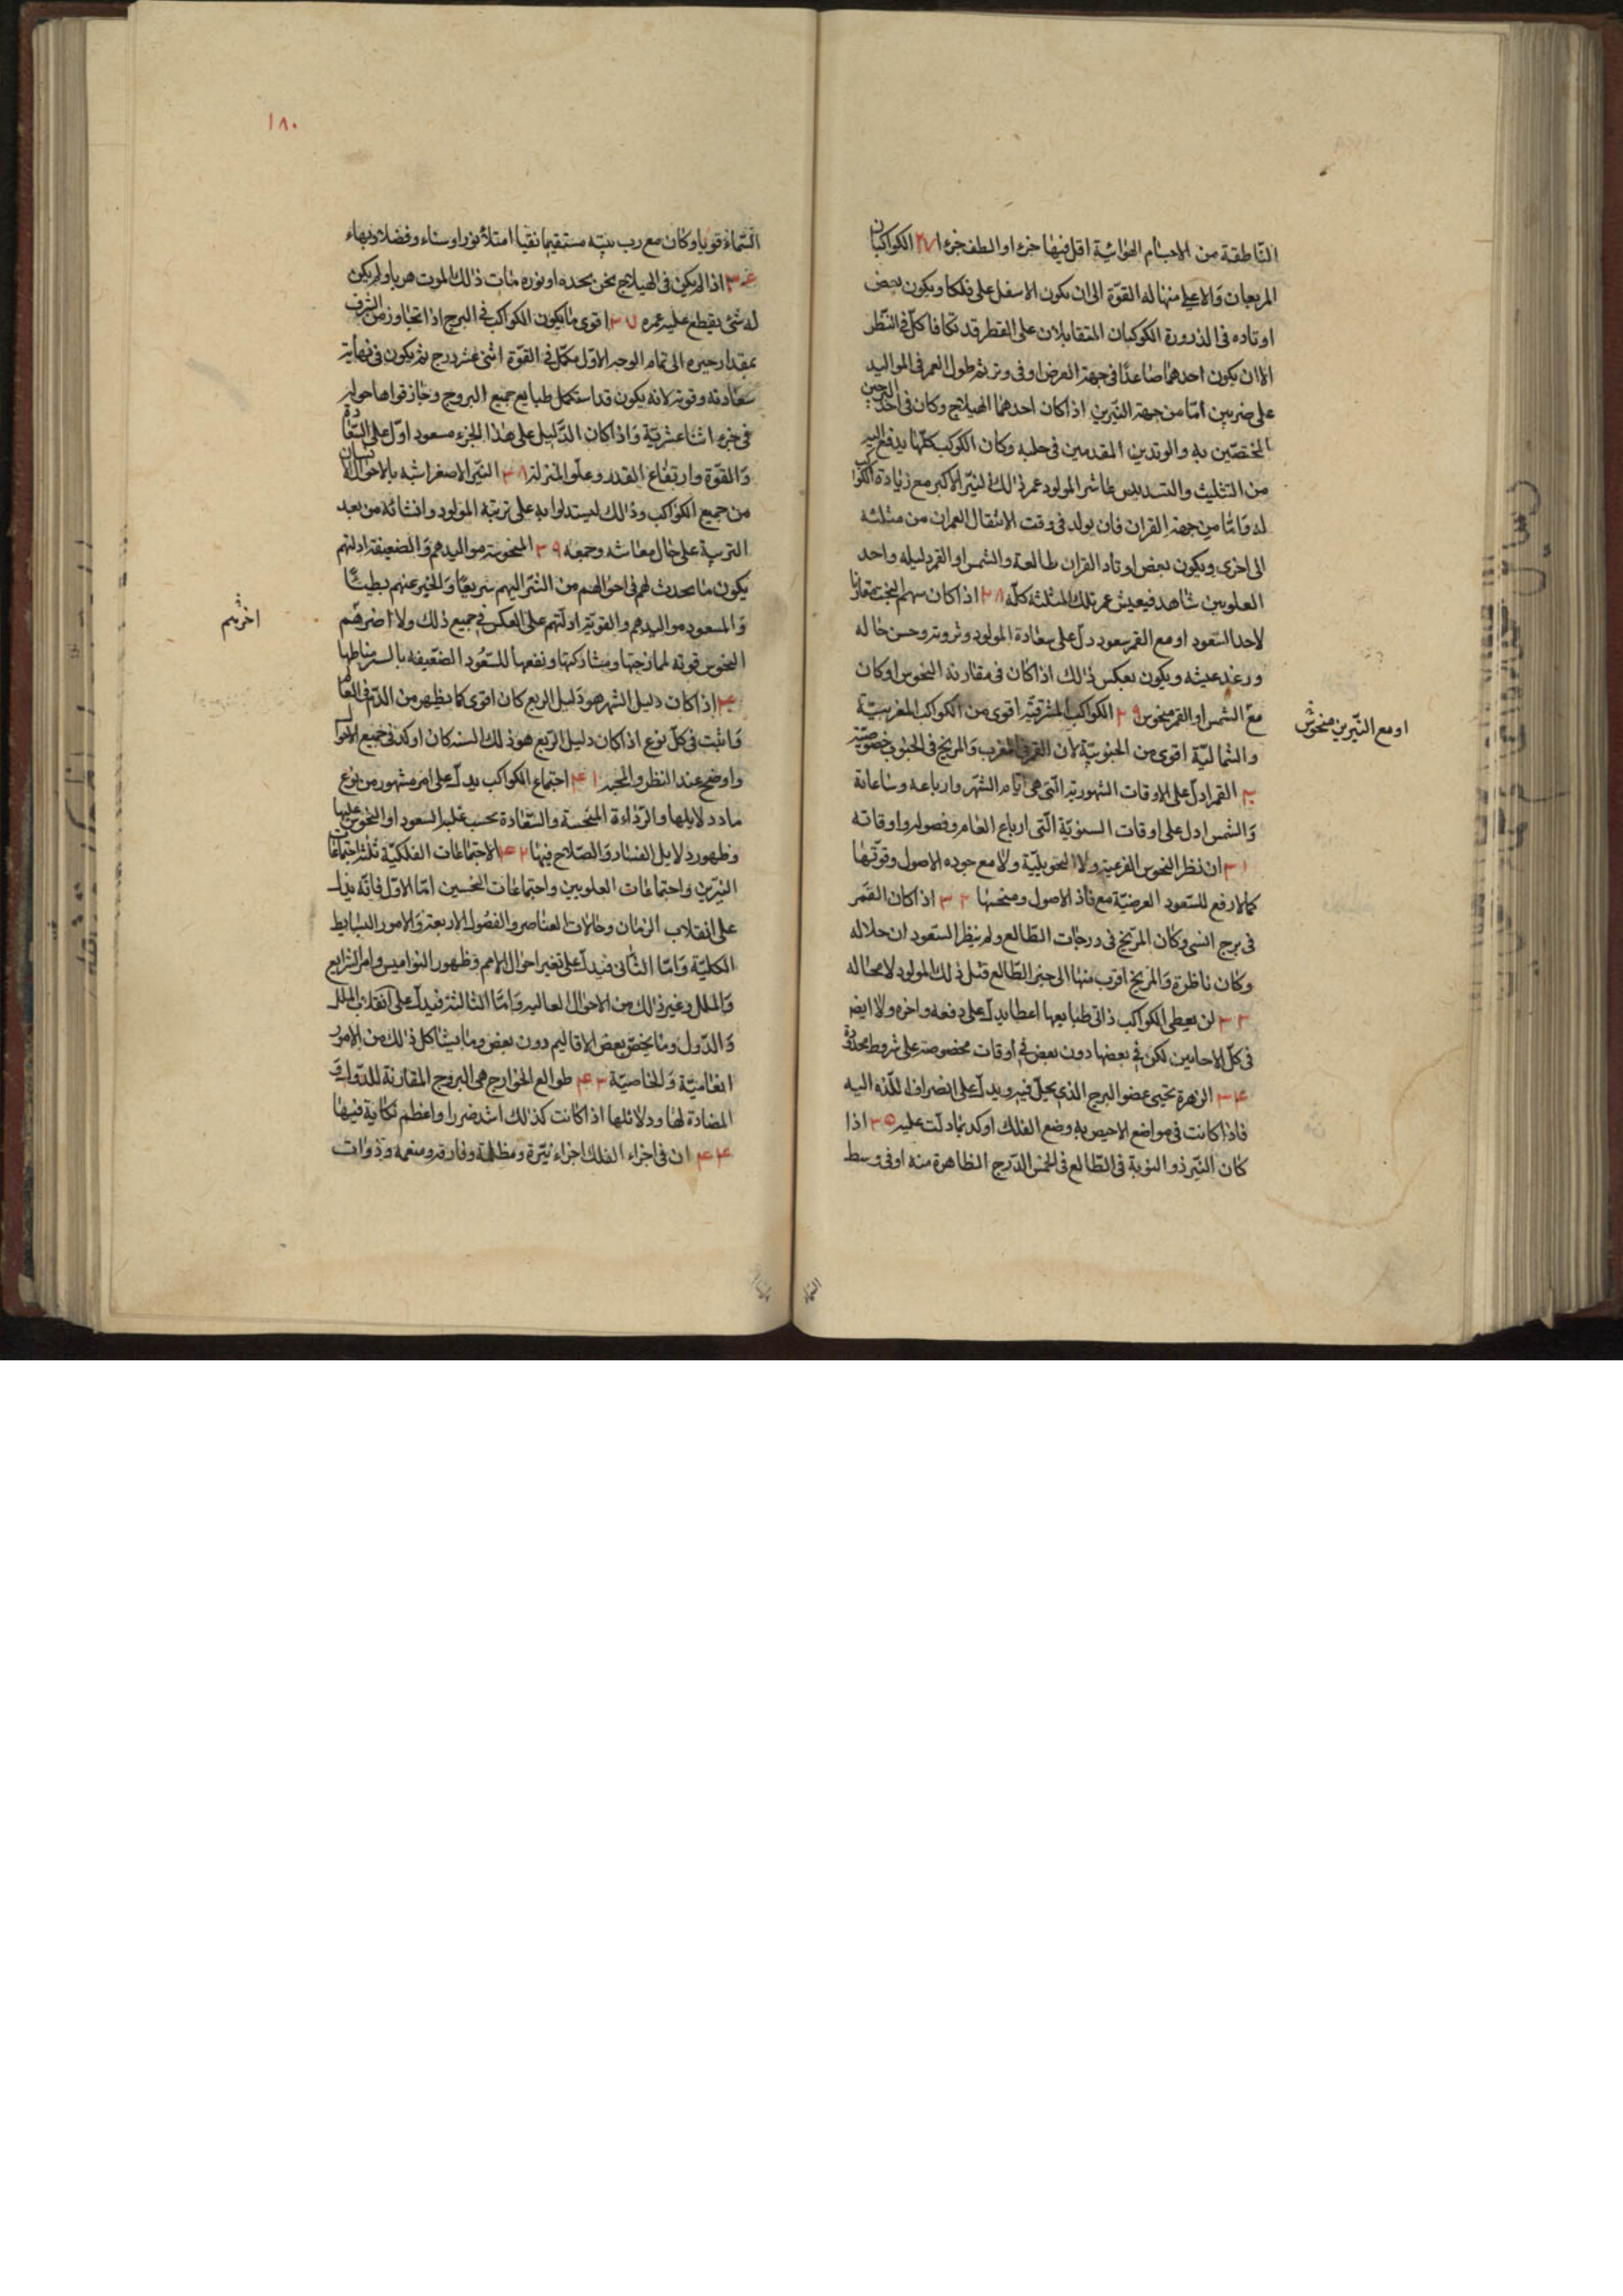 النّاطقة من الاجسام الهوائية اقل فيها جزء او الطف جزء ا ٢٧ الكوكبان
المربعان والاعلى منهما له القوّة الى ان يكون الاسفل على فلكا ويكون بعض
اوتاده فى الذرورة الكوكبان المتقابلان على القطر قد تكافا كلّ فى النّظر
الا ان يكون احدهما صاعدًا فى جهة العرض اوفى وتر يتم طول العمر فى المواليد
على ضربين امّا من جهة النّيّرين اذا كان احدهما الهيلاج وكان فى احد البرجين
المختصّين به والوتدين المقدمين فى حلبه وكان الكوكب كلّها يدفع اليه
من التثليث والتسديس عاشر المولود عمر ذلك النيّر الاكبر مع زيادة الكواكب
له وامّا من جهة القران فان يولد فى وقت الانتقال العمران من مثلثه
الى اخرى ويكون بعض اوتاد القران طالعة والشمس او القمر دليله واحد
العلويين شاهد فيعيش عمر تلك المثلثة كلّه ٢٨ اذا كان سهم البخت مقارنا
لاحد السّعود او مع القمر سعود دلّ على سعادة المولود وثروته وحسن حاله
ورغد عيشه ويكون بعكس ذلك اذا كان فى مقارنة النحوس او كان
مع الشمس او القمر منحوس ٢٩ الكواكب المشرقيّة اقوى من الكواكب المغربيّة
او مع النّيّرين منحوس
والشماليّة اقوى من الجنوبيّة لان القمر فى المغرب والمريخ فى الجنوب خصوصيّة
٣٠ القمر ادلّ على الاوقات الشهوريّة الّتى هى ايّام الشهر وارباعه وساعاته
والشمس ادل على اوقات السنويّة الّتى ارباع العام وفصوله واوقاته
٣١ ان نظر النحوس الفرعية ولا التحويليّة ولا مع جوده الاصول وقوّتها
كمالا رفع للسّعود العرضيّة مع فاد الاصول ومنحسها ٣٢ اذا كان القمر
فى برج انسى وكان المرّيخ فى درجات الطّالع ولم ينظر السّعود ان حلاله
وكان ناظرة والمريخ اقرب منها الى جزء الطّالع قتل ذلك المولود لا محاله
٣٣ لن يعطى الكواكب ذاتى طبايعها اعطا يدلّ على دفعه واخره ولا ايضا
فى كلّ الاحايين لكن فى بعضها دون بعض فى اوقات مخصوصة على شروط محدّدة
٣٤ الزهرة يختيى عضو البرج الذى يحلّ فيه ويدلّ على انصراف اللّذه اليه
فاذا كانت فى مواضع الاحيص به وضع الفلك اوكد بما دلت عليه ٣٥ اذا
كان النيّر ذو النوبة فى الطّالع فى الخمس الدّرج الظاهرة منه او فى وسط
السّماء
١٨٠
السّماء قويا وكان مع رب بيته مستقيما نقيا امتلأ نورا وسناء وفضلا وبهاء
٣٦ اذا لم يكن فى الهيلاج نحس بحده او نوره مات ذلك الموت هربا ولم يكن
له شئ يقطع عليه عمره ٣٧ اقوى ما يكون الكواكب فى البرج اذا تجاوز من الشرف
بمقدار حيزه الى تمام الوجه الاوّل مكمّل فى القوّة اثنى عشر درج ثم يكون فى نهاية
سعادته وقوته لانه يكون قد استكمل طبايع جميع البروج وحاز قواها حوله
فى جزء اثنا عشريّة واذا كان الدّليل على هذا الجزء مسعود اوّل على السّعادة
والقوّة وارتفاع القدر وعلو المنزلة ٣٨ النيّر الاصغر اشبه بالاحوال الانسان
من جميع الكواكب وذلك ليستدلوا به على تربية المولود وانشائه من بعد
التربية على حال معاشه وجمعه ٣٩ المنحوسة مواليدهم والضعيفة ادلتهم
يكون ما يحدث لهم فى احوالهم من الشرّ اليهم سريعًا والخير عنهم بطيئًا
والمسعود مواليدهم والقويّة ادلّتهم على العكس فى جميع ذلك ولا اضرّهم
اخرتهم
النحوس قوته لممازجتها ومشاركتها ونفعها للسّعود الضّعيفه بالسر مناظرها
٤٠ اذا كان دليل الشهر هو دليل الربع كان اقوى كما يظهر من الدّم فى العام
واثبت فى كلّ نوع اذا كان دليل الرّبع هو ذلك السنه كان اوكد فى جميع الاحوال
واوضح عند النظر والمحبر ٤١ اجتماع الكواكب يدلّ على امر مشهور من نوع
مادد لايلها والرّداءة المنحسة والسّعادة بحسب غلبه السعود او النحوس عليها
وظهور دلايل الفساد والصّلاح فيها ٤٢ الاجتماعات الفلكيّة ثلثة اجتماعات
النيّرين واجتماعات العلويين واجتماعات النحسين امّا الاوّل فانّه يدلّ
على انقلاب الزمان وحالات العناصر والفصول الاربعة والامور البسايط
الكليّة وامّا الثّانى فيدلّ على تغير احوال الامم وظهور النواميس وامر الشرايع
والملل وغير ذلك من الاحوال العاليه وامّا الثالثة فيدلّ على انقلاب الملل
والدّول وما يخصّ بعض الاقاليم دون بعض وما يشاكل ذلك من الامور
العاميّة والخاصيّة ٤٣ طوالع الخوارج هى البروج المقارنة للدّول و
المضادة لها ودلائلها اذا كانت كذلك اشد ضررا واعظم نكاية فيها
٤٤ ان فى اجزاء الفلك اجزاء نيّرة ومظلمة وفارقه ومنعمه وذوات